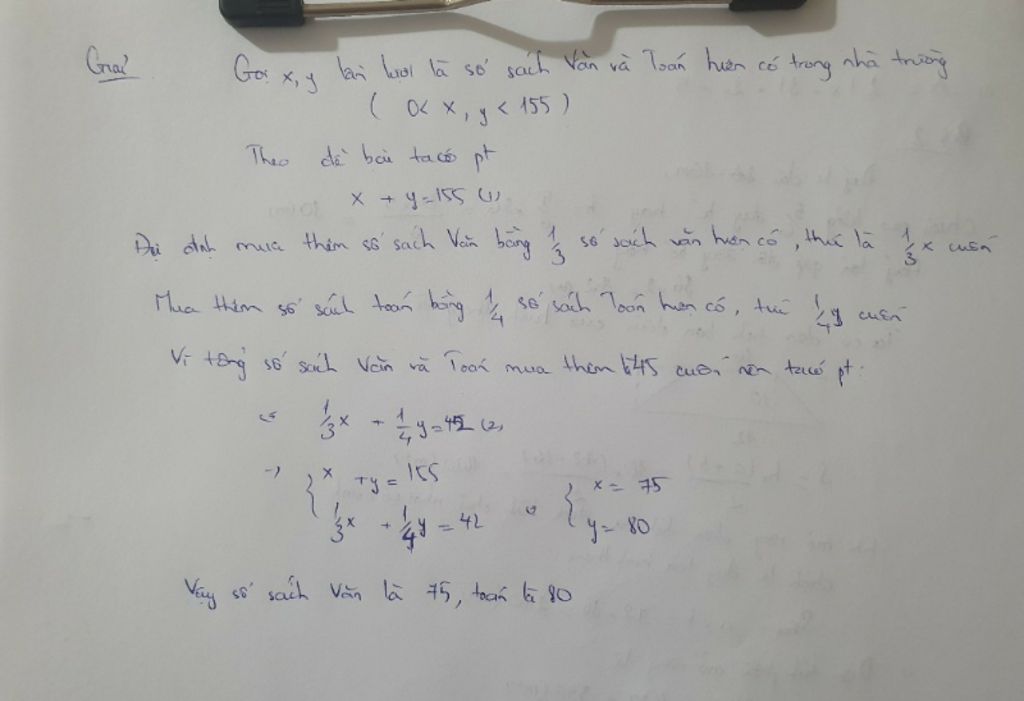 Giải Gọi x, y lần lượt là số sách Văn và Toán hiện có trong nhà trường
( 0 < x, y < 155 )
Theo đề bài ta có pt
x + y = 155 (1)
Dự định mua thêm số sách Văn bằng 1/3 số sách văn hiện có, thức là 1/3 x cuốn
Mua thêm số sách toán bằng 1/4 số sách Toán hiện có, tức 1/4 y cuốn
Vì tổng số sách Văn và Toán mua thêm 45 cuốn nên ta có pt:
1/3 x + 1/4 y = 45 (2)
→ { x + y = 155
1/3 x + 1/4 y = 42
{ x = 75
y = 80
Vậy số sách Văn là 75, toán là 80